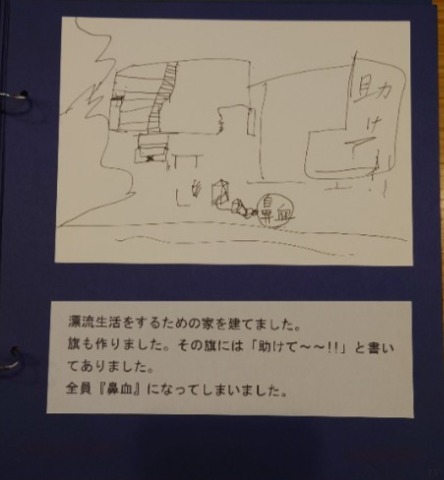 助けて
鼻血
漂流生活をするための家を建てました。
旗も作りました。その旗には「助けて～～!!」と書い
てありました。
全員『鼻血』になってしまいました。